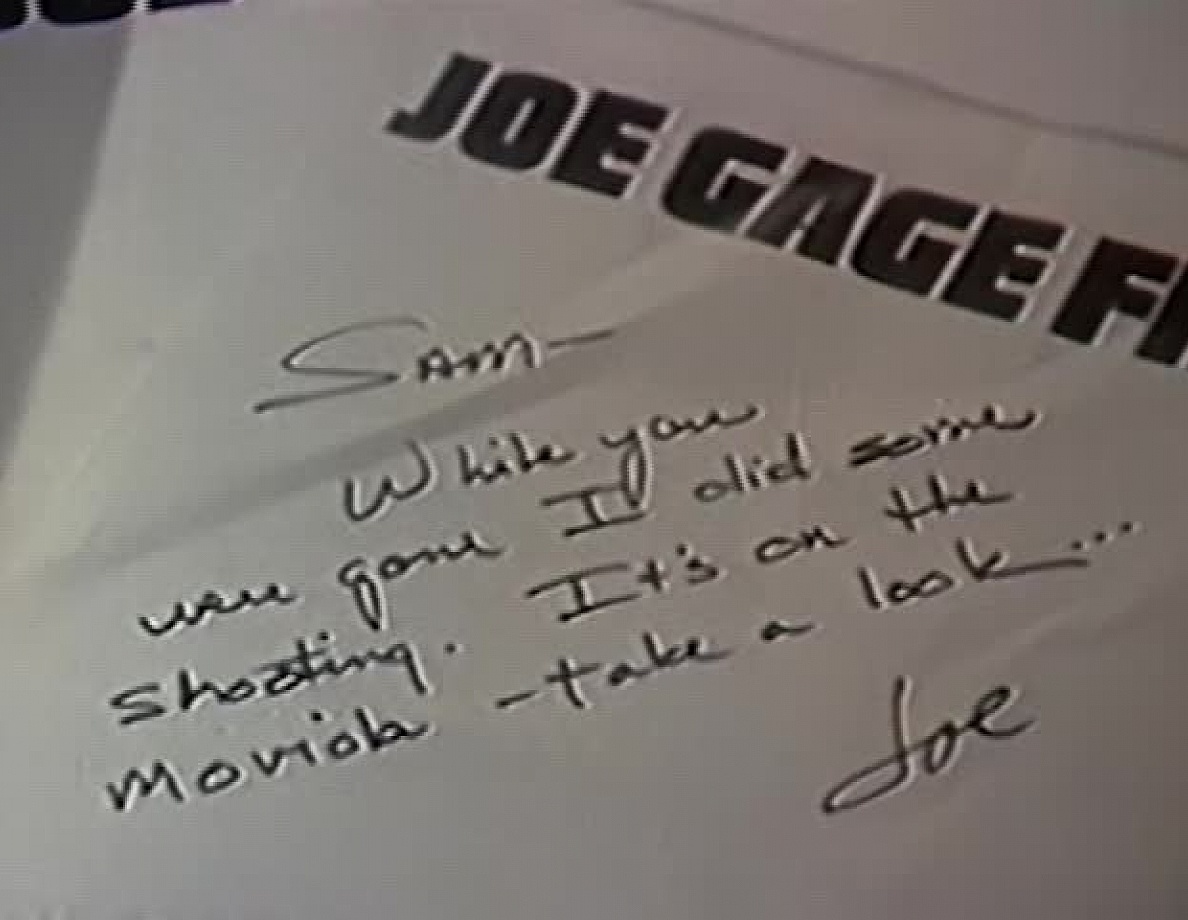 JOE GAGE FI
SAM—
While you
were gone I did some
shooting. It's on the
Moviola - take a look...
Joe